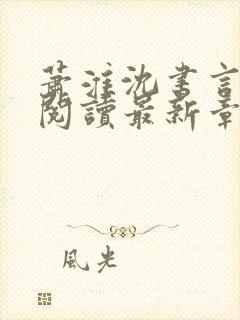 蕭淮沈書言
閱讀最新章
風光